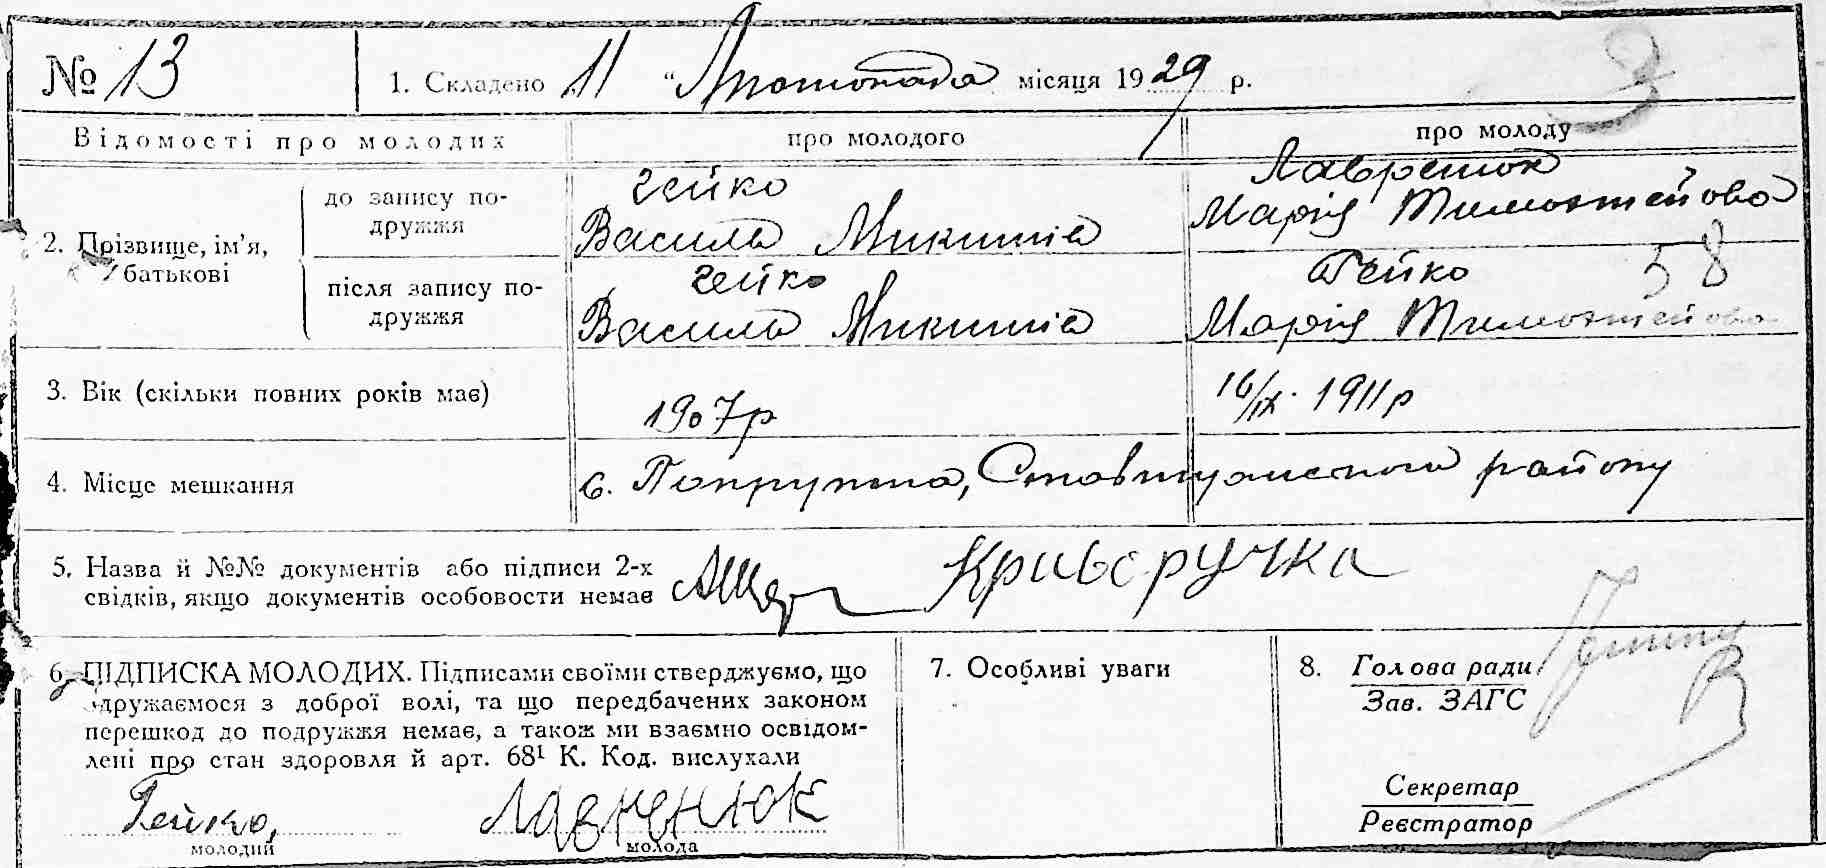 № 13
1. Складено „11 “ Листопада місяця 1929 р.
3
Відомості про молодих
про молодого
про молоду
2. Прізвище, ім’я, батькові
до запису подружжя
Гейко
Василь Микитів
Лавренюк
Марія Тимофтейова
після запису подружжя
Гейко
Василь Микитів
Гейко 58
Марія Тимофтейова
3. Вік (скільки повних років має)
1907р
16/IX. 1911р
4. Місце мешкання
с. Попружна, Ставищанського району
5. Назва й №№ документів або підписи 2-х
свідків, якщо документів особовости немає
Криворучка
6. ПІДПИСКА МОЛОДИХ. Підписами своїми стверджуємо, що
одружаємося з доброї волі, та що передбачених законом
перешкод до подружжя немає, а також ми взаємно освідом-
лені про стан здоровля й арт. 68¹ К. Код. вислухали
Гейко,
молодий
Лавренюк
молода
7. Особливі уваги
8. Голова ради
Зав. ЗАГС
Секретар
Реєстратор